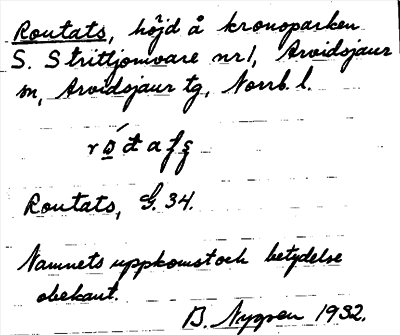 Routats, höjd å kronoparken
S. Strittjomvare nr 1, Arvidsjaur
sn, Arvidsjaur tg, Norrb. l.
Routats, G. 34.
Namnets uppkomst och betydelse
obekant.
B. Nygren 1932.